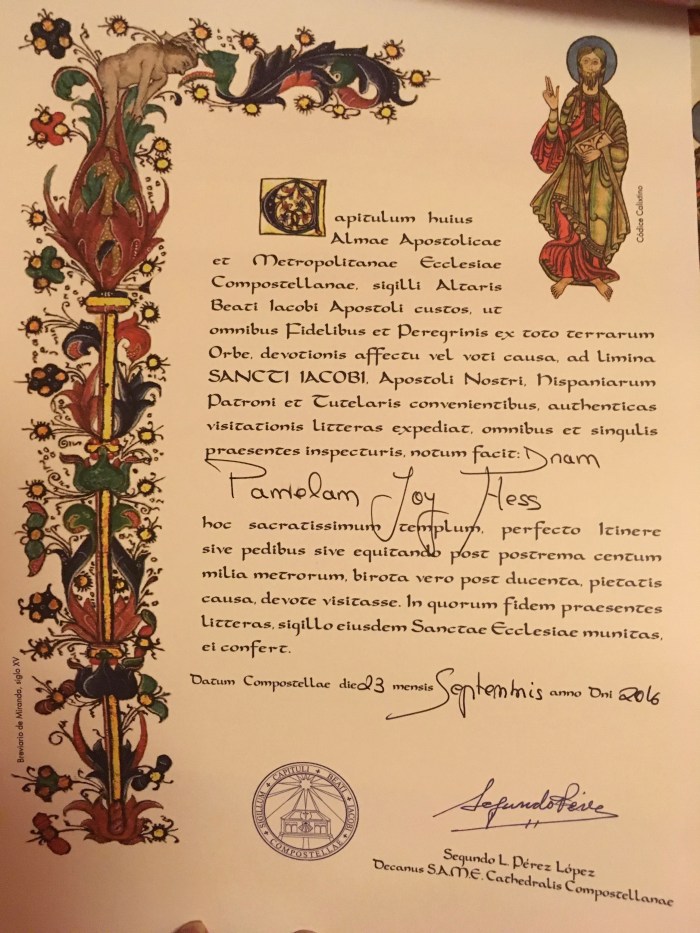 Capitulum huius
Almae Apostolicae
et Metropolitanae Ecclesiae
Compostellanae, sigilli Altaris
Beati Iacobi Apostoli custos, ut
omnibus Fidelibus et Peregrinis ex toto terrarum
Orbe, devotionis affectu vel voti causa, ad limina
SANCTI IACOBI, Apostoli Nostri, Hispaniarum
Patroni et Tutelaris convenientibus, authenticas
visitationis litteras expediat, omnibus et singulis
praesentes inspecturis, notum facit: Dnam
Pamelam Joy Hess
hoc sacratissimum templum, perfecto Itinere
sive pedibus sive equitando post postrema centum
milia metrorum, birota vero post ducenta, pietatis
causa, devote visitasse. In quorum fidem praesentes
litteras, sigillo eiusdem Sanctae Ecclesiae munitas,
ei confert.
Datum Compostellae die 23 mensis Septembris anno Dni 2016
SIGILLUM CAPITULI BEATI IACOBI COMPOSTELLAE
Segundo Pérez
Segundo L. Pérez López
Decanus S.A.M.E. Cathedralis Compostellanae
Códice Calixtino
Breviario de Miranda, siglo XV